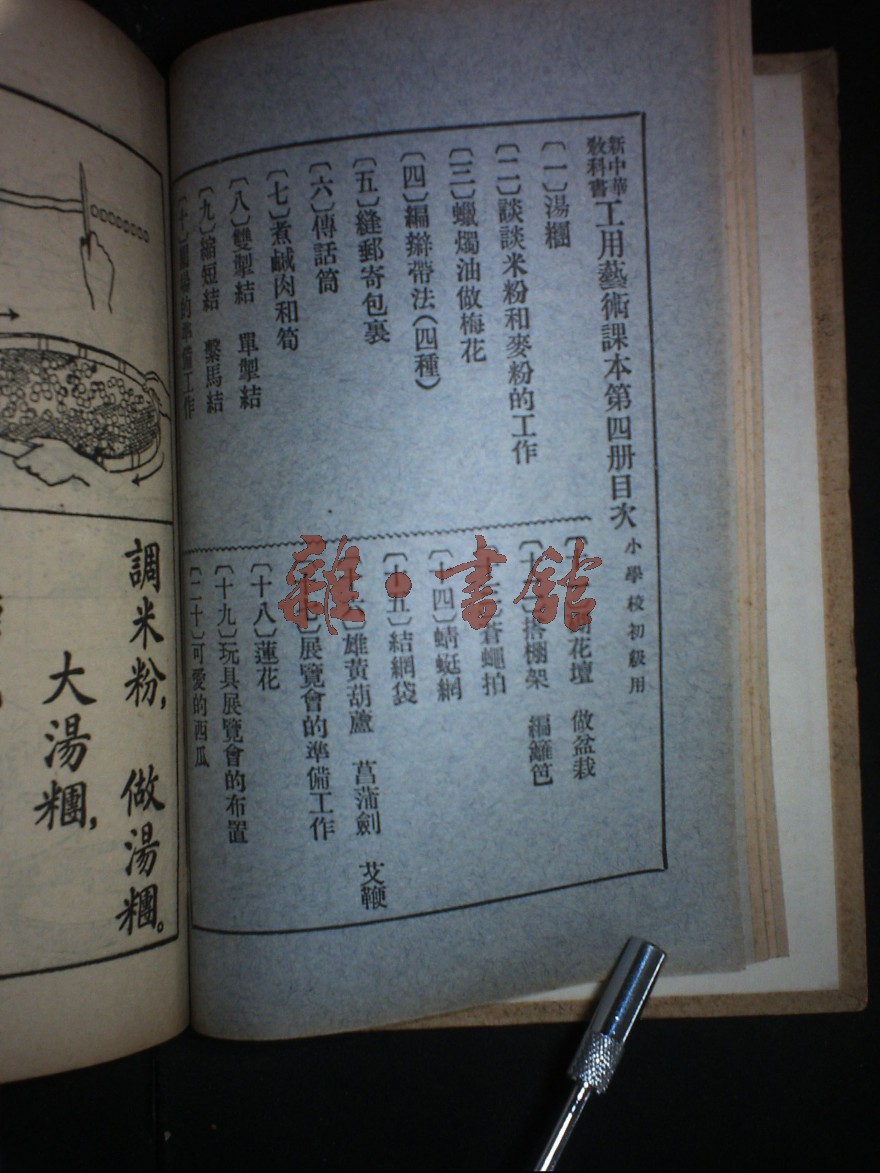 新中華教科書 工用藝術課本第四册目次 小學校初級用
〔一〕湯糰
〔二〕談談米粉和麥粉的工作
〔三〕蠟燭油做梅花
〔四〕編辮帶法（四種）
〔五〕縫郵寄包裹
〔六〕傳話筒
〔七〕煮鹹肉和筍
〔八〕雙掣結 單掣結
〔九〕縮短結 繫馬結
〔十〕的準備工作
花壇 做盆栽
搭棚架 編籬笆
蒼蠅拍
〔十四〕蜻蜓網
〔十五〕結網袋
雄黃葫蘆 菖蒲劍 艾鞭
展覽會的準備工作
〔十八〕蓮花
〔十九〕玩具展覽會的布置
〔二十〕可愛的西瓜
調米粉，做湯糰。
大湯糰，
雜·書館